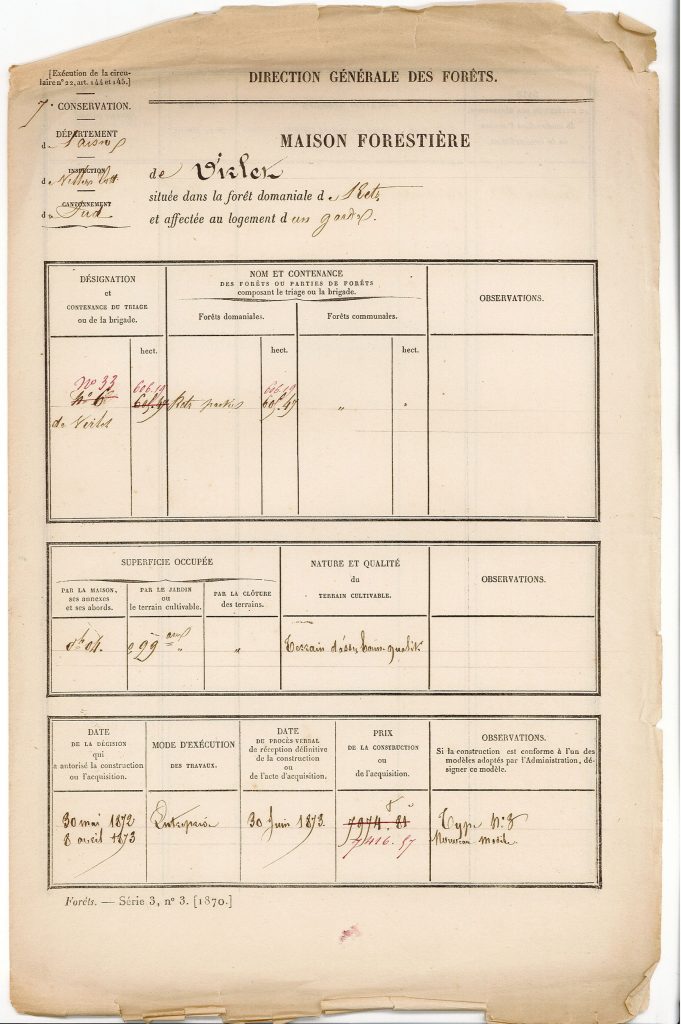 [Exécution de la circu-
laire nº 22, art. 144 et 145.]
7e CONSERVATION.
DÉPARTEMENT
de l'aisne
INSPECTION
de Villers Cott
CANTONNEMENT
du Sud
DIRECTION GÉNÉRALE DES FORÊTS.
MAISON FORESTIÈRE
de Virlet
située dans la forêt domaniale de Retz
et affectée au logement d'un garde.
DÉSIGNATION
et
CONTENANCE DU TRIAGE
ou de la brigade.
NOM ET CONTENANCE
DES FORÊTS OU PARTIES DE FORÊTS
composant le triage ou la brigade.
Forêts domaniales.
Forêts communales.
OBSERVATIONS.
hect.
hect.
hect.
Nº 33
606.19
606.19
nº 6
605.47
Retz partie
605.47
"
"
de Virlet
SUPERFICIE OCCUPÉE
PAR LA MAISON,
ses annexes
et ses abords.
PAR LE JARDIN
ou
le terrain cultivable.
PAR LA CLÔTURE
des terrains.
NATURE ET QUALITÉ
du
TERRAIN CULTIVABLE.
OBSERVATIONS.
04.
99 ares
"
"
Terrain d'assez bonne qualité
DATE
DE LA DÉCISION
qui
a autorisé la construction
ou l'acquisition.
MODE D'EXÉCUTION
DES TRAVAUX.
DATE
DU PROCÈS-VERBAL
de réception définitive
de la construction
ou
de l'acte d'acquisition.
PRIX
DE LA CONSTRUCTION
ou
de l'acquisition.
OBSERVATIONS.
Si la construction est conforme à l'un des
modèles adoptés par l'Administration, dé-
signer ce modèle.
30 mai 1872
8 avril 1873
Entreprise
30 Juin 1873
7974.81
7416.57
Type Nº 3
Nouveau modèle
Forêts. — Série 3, nº 3. [1870.]